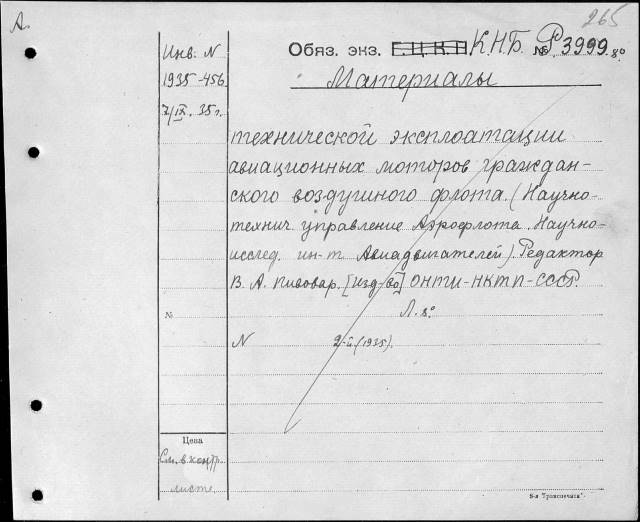 А.
265
Инв. N
1935-456
7/IX. 35 г.
Обяз. экз. Г.Ц.К.П. К.Н.Б. № Р 3999. 8°
Материалы
технической эксплоатации
авиационных моторов граждан-
ского воздушного флота. (Научно-
технич. управление Аэрофлота. Научно-
исслед. ин-т Авиадвигателей). Редактор
В. А. Пивовар. [Изд-во] ОНТИ-НКТП-СССР.
Л. 8°
№
N 2-й (1935).
Цена
См. в. контр.
листе
8-я "Транспечати".